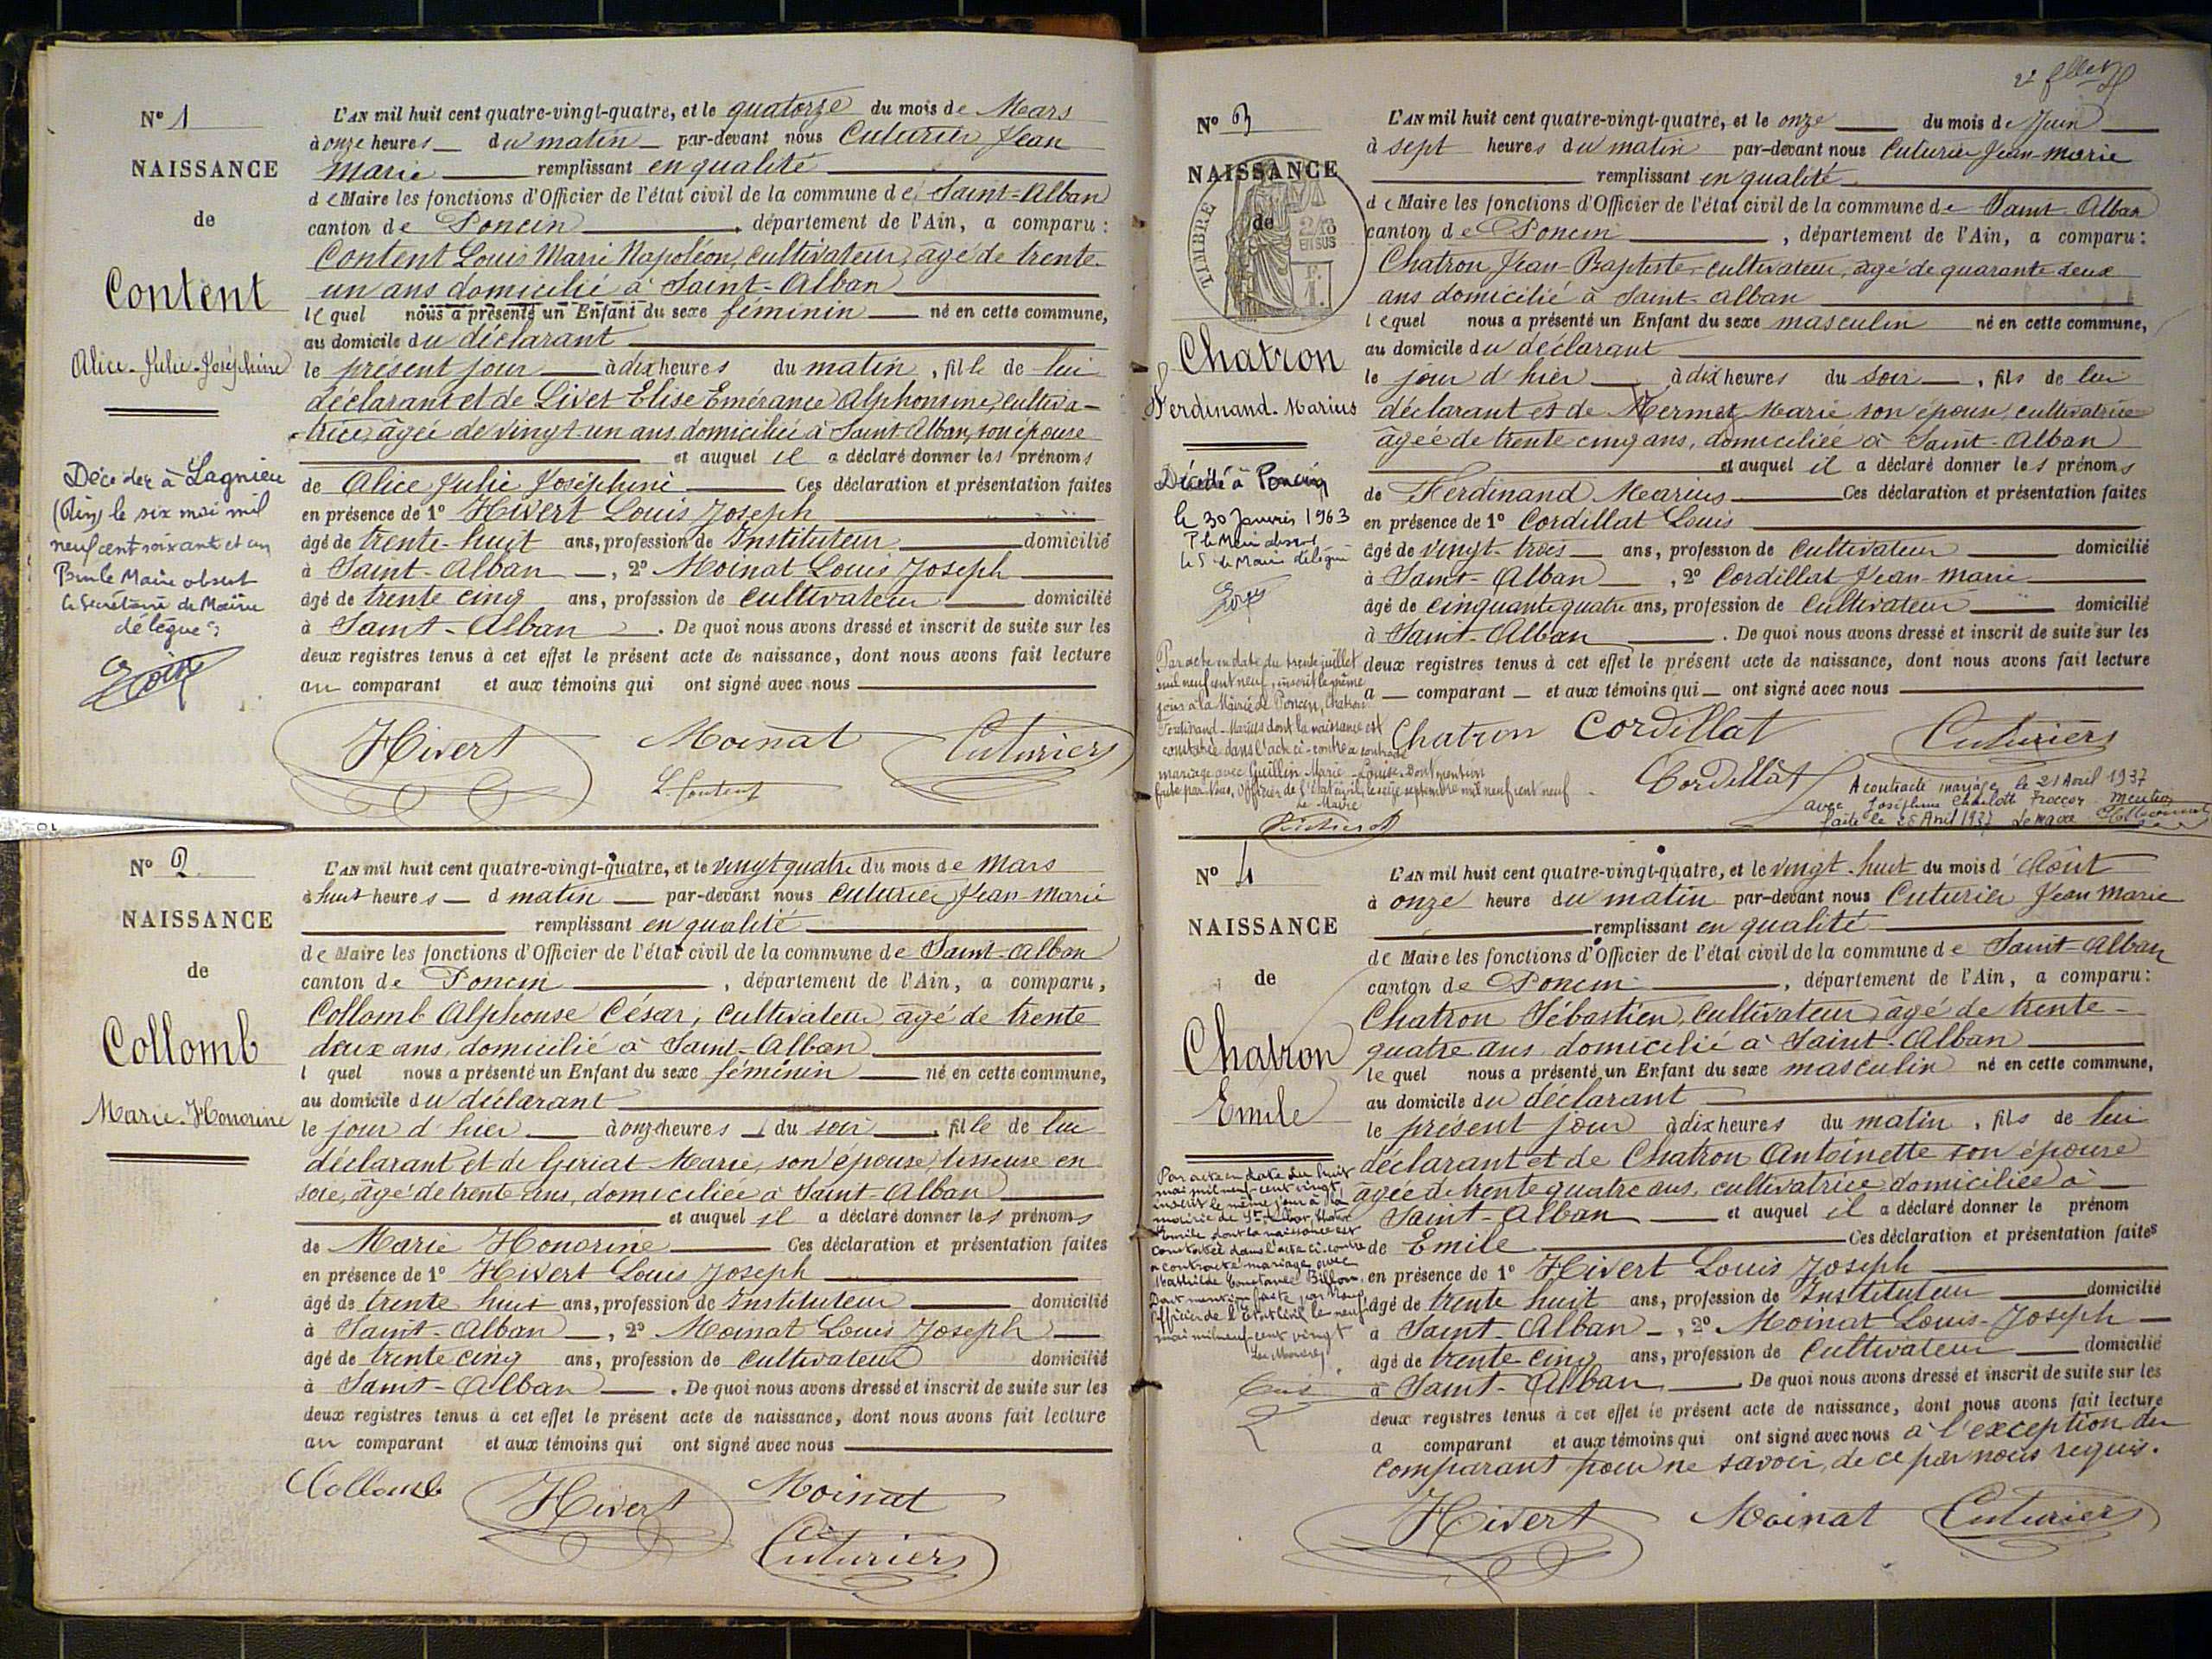 Nº 1
NAISSANCE
de
Content
Alice-Julie-Joséphine
Décédée à Lagnieu
(Ain) le six mai mil
neuf cent soixante et un
Pour le Maire absent
le Secrétaire de Mairie
délégué
L'AN mil huit cent quatre-vingt-quatre, et le quatorze du mois de Mars
à onze heures du matin par-devant nous Cuturier Jean
Marie remplissant en qualité
de Maire les fonctions d'Officier de l'état civil de la commune de Saint-Alban
canton de Poncin, département de l'Ain, a comparu :
Content Louis Marie Napoléon, cultivateur, âgé de trente-
un ans domicilié à Saint-Alban
lequel nous a présenté un Enfant du sexe féminin né en cette commune,
au domicile du déclarant
le présent jour à dix heures du matin, fille de lui
déclarant et de Livet Elise Emérance Alphonsine, cultiva-
trice, âgée de vingt-un ans, domiciliée à Saint-Alban, son épouse
et auquel il a déclaré donner les prénoms
de Alice Julie Joséphine Ces déclaration et présentation faites
en présence de 1º Hivert Louis Joseph
âgé de trente-huit ans, profession de Instituteur domicilié
à Saint-Alban, 2º Moinat Louis Joseph
âgé de trente cinq ans, profession de cultivateur domicilié
à Saint-Alban. De quoi nous avons dressé et inscrit de suite sur les
deux registres tenus à cet effet le présent acte de naissance, dont nous avons fait lecture
au comparant et aux témoins qui ont signé avec nous
Hivert Moinat Cuturier
L. Content
Nº 2
NAISSANCE
de
Collomb
Marie-Honorine
L'AN mil huit cent quatre-vingt-quatre, et le vingt quatre du mois de Mars
à huit heures d matin par-devant nous Cuturier Jean-Marie
remplissant en qualité
de Maire les fonctions d'Officier de l'état civil de la commune de Saint-Alban
canton de Poncin, département de l'Ain, a comparu,
Collomb Alphonse César, cultivateur, âgé de trente
deux ans, domicilié à Saint-Alban
l quel nous a présenté un Enfant du sexe féminin né en cette commune,
au domicile du déclarant
le jour d'hier à onze heures du soir, fille de lui
déclarant et de Geriat Marie, son épouse, tisseuse en
soie, âgé de trente ans, domiciliée à Saint-Alban
et auquel il a déclaré donner les prénoms
de Marie Honorine Ces déclaration et présentation faites
en présence de 1º Hivert Louis Joseph
âgé de trente huit ans, profession de Instituteur domicilié
à Saint-Alban, 2º Moinat Louis Joseph
âgé de trente cinq ans, profession de cultivateur domicilié
à Saint-Alban. De quoi nous avons dressé et inscrit de suite sur les
deux registres tenus à cet effet le présent acte de naissance, dont nous avons fait lecture
au comparant et aux témoins qui ont signé avec nous
Collomb Hivert Moinat
Cuturier
Nº 3
NAISSANCE
de
TIMBRE
2/10
EN SUS
Chatron
Ferdinand-Marius
Décédé à Poncin
le 30 Janvier 1963
P le Maire absent
le S. de Mairie délégué
Par acte en date du trente juillet
mil neuf cent neuf, inscrit le même
jour à la Mairie de Poncin, Chatron
Ferdinand-Marius dont la naissance est
constatée dans l'acte ci-contre a contracté
mariage avec Guillin Marie-Louise. Dont mention
faite par Nous, Officier de l'état civil, le seize septembre mil neuf cent neuf
Le Maire
L'AN mil huit cent quatre-vingt-quatre, et le onze du mois de Juin
à sept heures du matin par-devant nous Cuturier Jean-Marie
remplissant en qualité
de Maire les fonctions d'Officier de l'état civil de la commune de Saint-Alban
canton de Poncin, département de l'Ain, a comparu :
Chatron Jean-Baptiste, cultivateur, âgé de quarante deux
ans domicilié à Saint-Alban
lequel nous a présenté un Enfant du sexe masculin né en cette commune,
au domicile du déclarant
le jour d'hier à dix heures du soir, fils de lui
déclarant et de Mermet Marie son épouse, cultivatrice
âgée de trente cinq ans, domiciliée à Saint-Alban
et auquel il a déclaré donner les prénoms
de Ferdinand Marius Ces déclaration et présentation faites
en présence de 1º Cordillat Louis
âgé de vingt-trois ans, profession de cultivateur domicilié
à Saint-Alban, 2º Cordillat Jean-Marie
âgé de cinquante quatre ans, profession de cultivateur domicilié
à Saint-Alban. De quoi nous avons dressé et inscrit de suite sur les
deux registres tenus à cet effet le présent acte de naissance, dont nous avons fait lecture
a comparant et aux témoins qui ont signé avec nous
Chatron Cordillat Cuturier
Cordillat
A contracté mariage le 21 Avril 1937
avec Joséphine Charlotte Mention
faite le 26 Avril 1937 Le maire
Nº 4
NAISSANCE
de
Chatron
Emile
Par acte en date du huit
mai mil neuf-cent vingt,
inscrit le même jour à la
mairie de St-Alban, Chatron
Emile dont la naissance est
constatée dans l'acte ci-contre
a contracté mariage avec
Mathilde Constance Billon.
Dont mention faite par Nous
Officier de l'Etat Civil le neuf
mai mil neuf-cent vingt
Le Maire
L'AN mil huit cent quatre-vingt-quatre, et le vingt-huit du mois d'Août
à onze heure du matin par-devant nous Cuturier Jean Marie
remplissant en qualité
de Maire les fonctions d'Officier de l'état civil de la commune de Saint-Alban
canton de Poncin, département de l'Ain, a comparu :
Chatron Sébastien, cultivateur âgé de trente-
quatre ans domicilié à Saint-Alban
lequel nous a présenté un Enfant du sexe masculin né en cette commune,
au domicile du déclarant
le présent jour à dix heures du matin, fils de lui
déclarant et de Chatron Antoinette son épouse
âgée de trente quatre ans, cultivatrice domiciliée à
Saint-Alban et auquel il a déclaré donner le prénom
de Emile Ces déclaration et présentation faites
en présence de 1º Hivert Louis Joseph
âgé de trente huit ans, profession de Instituteur domicilié
à Saint-Alban, 2º Moinat Louis-Joseph
âgé de trente cinq ans, profession de Cultivateur domicilié
à Saint-Alban De quoi nous avons dressé et inscrit de suite sur les
deux registres tenus à cet effet le présent acte de naissance, dont nous avons fait lecture
a comparant et aux témoins qui ont signé avec nous à l'exception du
comparant pour ne savoir, de ce par nous requis.
Hivert Moinat Cuturier